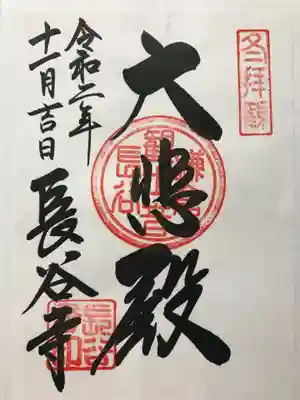 奉拝
大悲殿
令和二年
十一月吉日
長谷寺